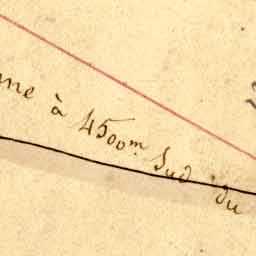 à 4500m Sud du